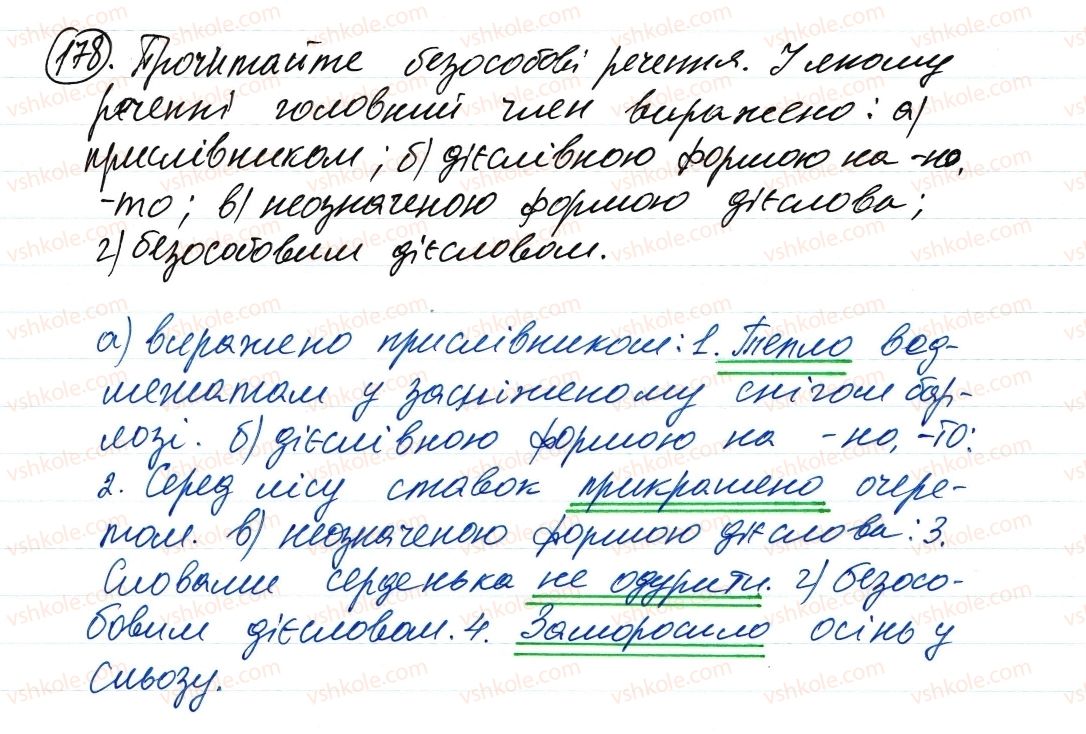 178. Прочитайте безособові речення. У якому
реченні головний член виражено: а)
прислівником; б) дієслівною формою на -но,
-то; в) неозначеною формою дієслова;
г) безособовим дієсловом.
а) виражено прислівником: 1. Тепло вед-
межатам у засніженому снігом бар-
лозі. б) дієслівною формою на -но, -то:
2. Серед лісу ставок прикрашено очере-
том. в) неозначеною формою дієслова: 3.
Словами серденька не одурити. г) безосо-
бовим дієсловом. 4. Заморосило осінь у
сльозу.